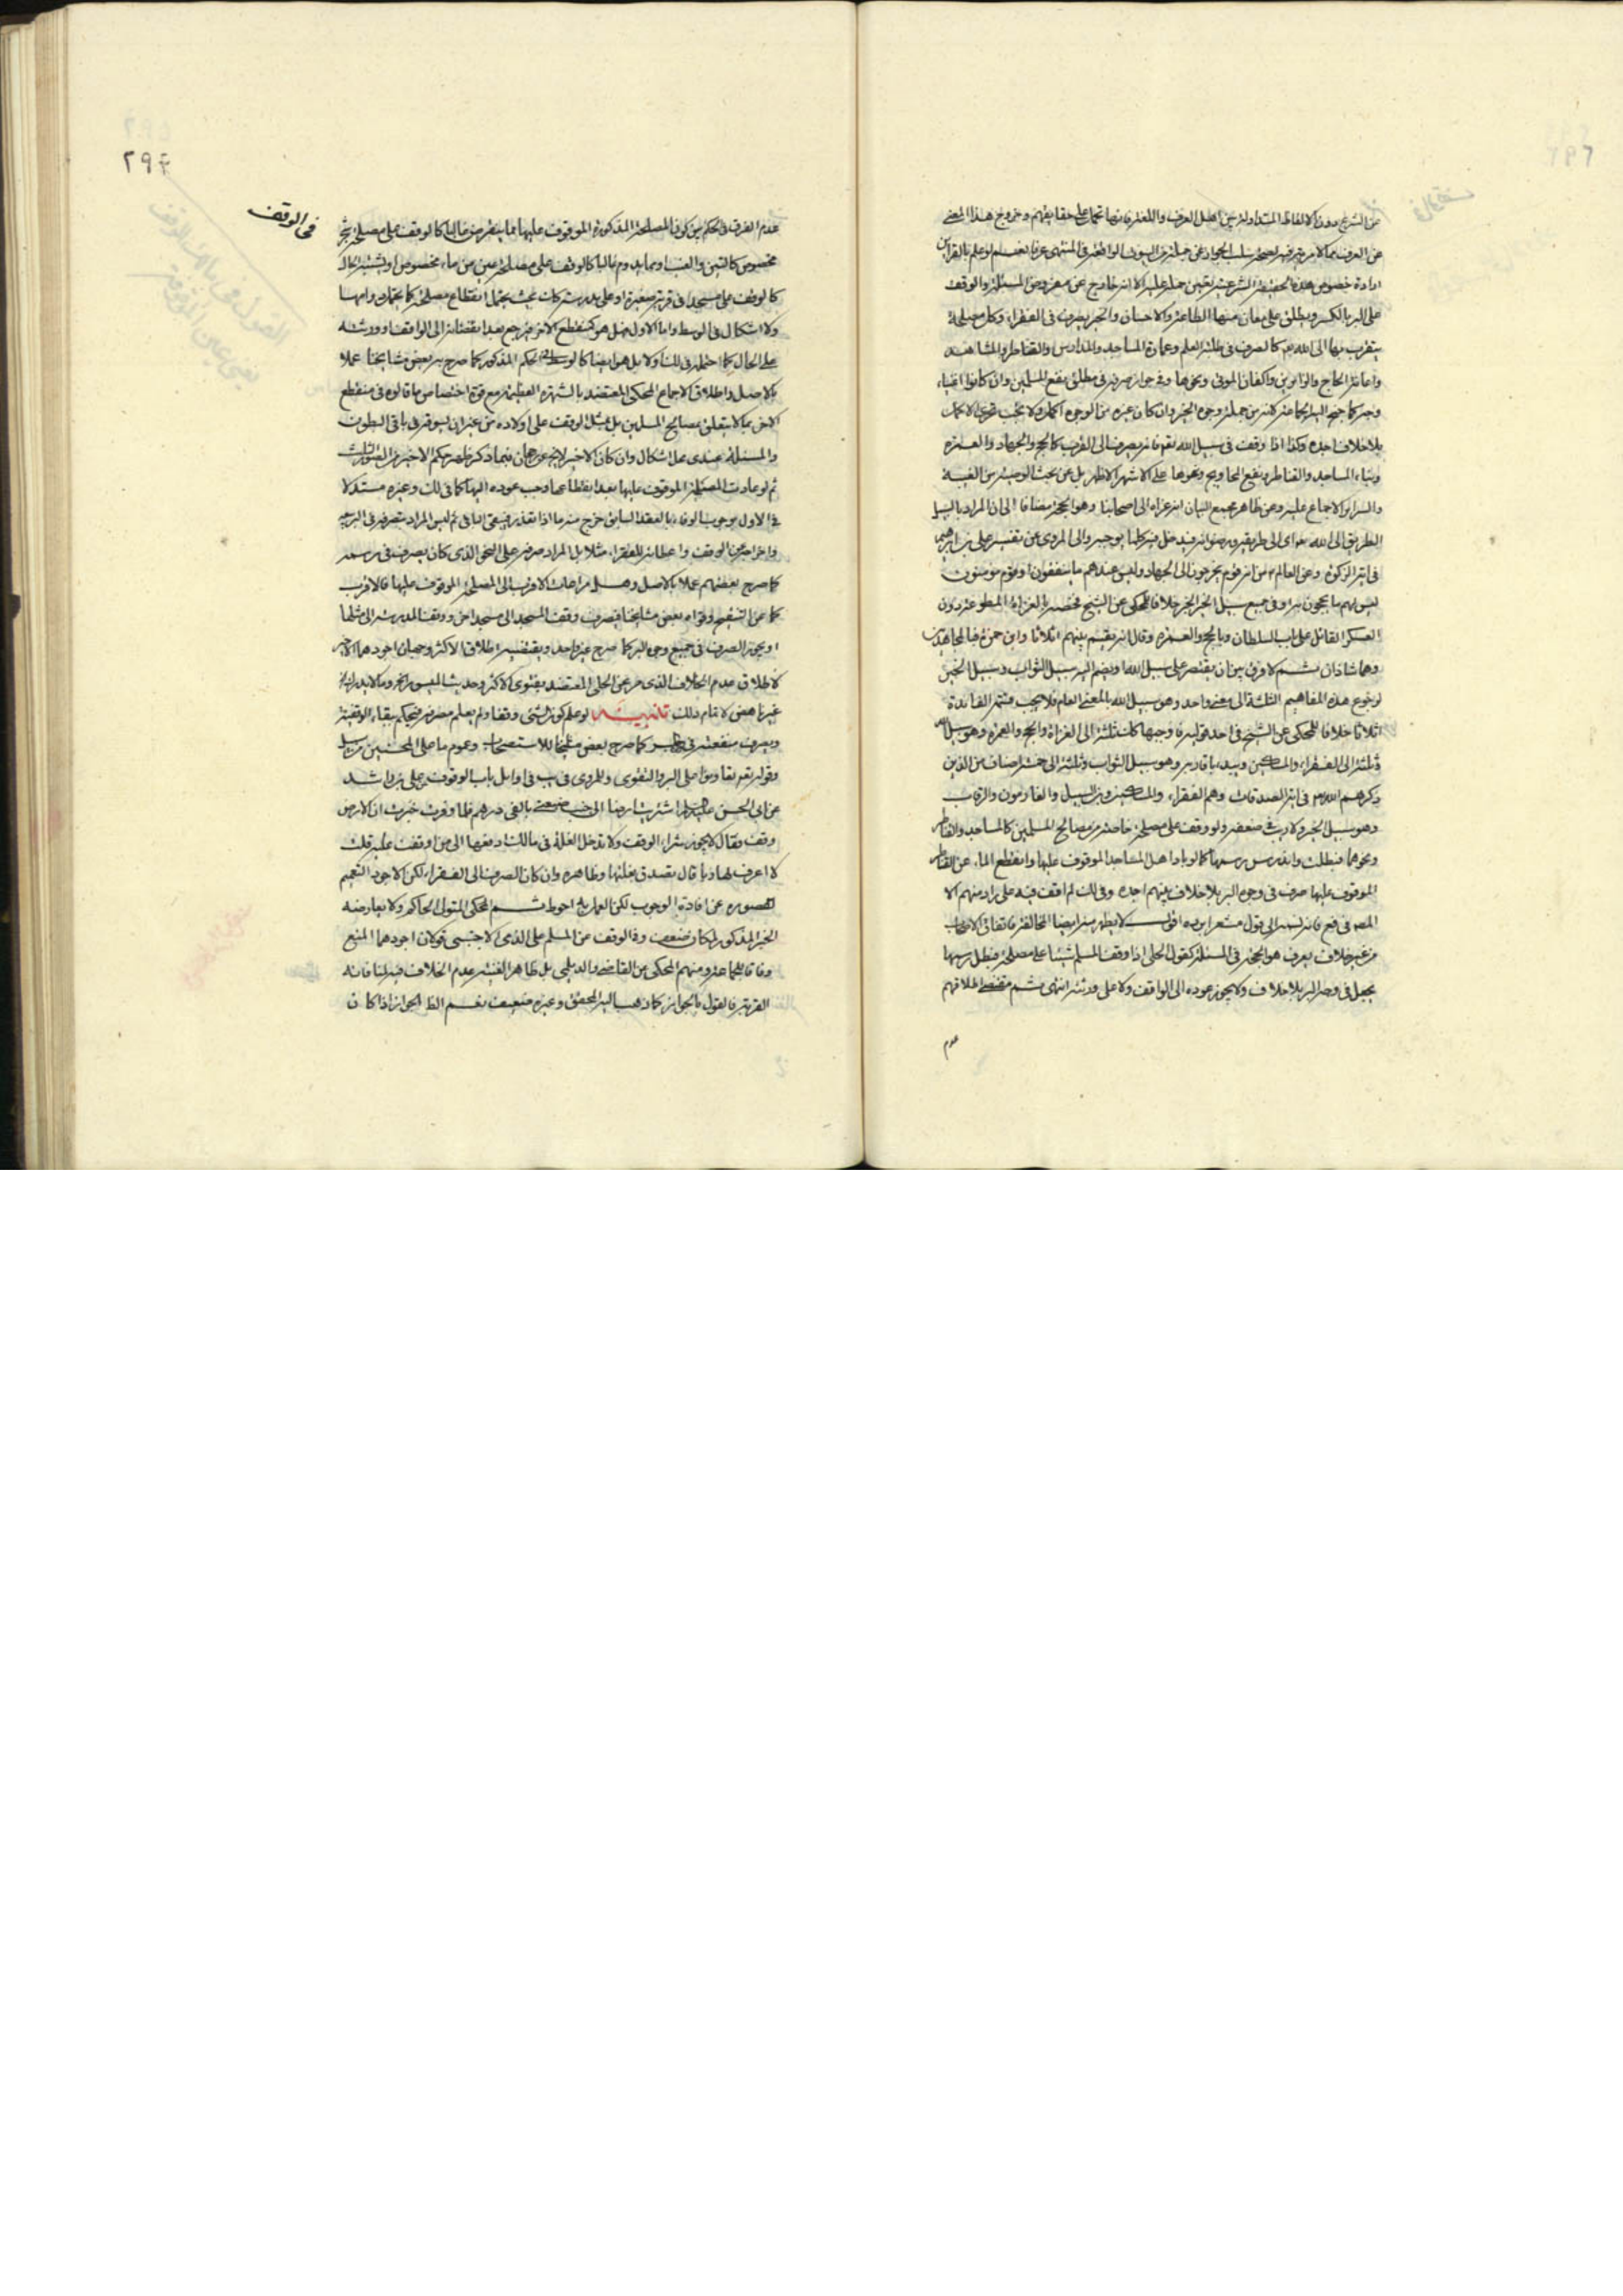 من الشرع دون الالفاظ المتداولة بين اهل العرف واللغة فانها تحمل على حقايقهم وخروج هذا المعنى
عن العرف مما لا ريب فيه لصحة سلب الجواد عن جملة من البيوت الواقعة في المنتهى عرفا نعم لو علم بالقراين
ارادة خصوص هذه الحقيقة الشرعية تعين حمله عليه الا انه خارج عن مفروض المسئلة والوقف
على البر بالكسر ويطلق على معان منها الطاعة والاحسان والخير يصرف في الفقراء وكل مصلحة
يتقرب بها الى الله تع كالصرف في طلبة العلم وعمارة المساجد والمدارس والقناطر والمشاهد
واعانة الحاج والزائرين واكفان الموتى ونحوها وفي جواز صرفه في مطلق نفع المسلمين وان كانوا اغنياء
وجه كما جنح اليه الجماعة لانه من جملة وجوه الخير وان كان غيره من الوجوه اكمل ولا يجب تحري الاكمل
بلا خلاف اجده وكذا اذا وقف في سبيل الله نعم فانه يصرف الى القرب كالحج والجهاد والعمرة
وبناء المساجد والقناطر ونفع المحاويج ونحوها على الاشهر الاظهر بل عن بحث الوصية من الغنية
والسرائر الاجماع عليه وعن ظاهر مجمع البيان انه عزاه الى اصحابنا وهو الحجة مضافا الى ان المراد بالسبيل
الطريق الى الله اى الى طريقه ورضوانه فيدخل فيه كلما يوجبه والى المروى عن تفسير على بن ابراهيم
في اية الزكوة وعن العالم ع من انه قوم يخرجون الى الجهاد وليس عندهم ما ينفقون او قوم مؤمنون
ليس لهم ما يحجون به او في جميع سبل الخير خلافا للمحكى عن الشيخ فخصه بالغزاة المطوعة دون
العسكر القائل على باب السلطان وبالحج والعمرة وقال انه يقسم بينهم اثلاثا وابن حمزة فبالمجاهدين
وهما شاذان ثم لا فرق بين ان يقتصر على سبيل الله او يضم اليه سبيل الثواب وسبيل الخير
لرجوع هذه المفاهيم الثلثة الى معنى واحد وهو سبيل الله بالمعنى العام فلا يجب قسمة الفائدة
اثلاثا خلافا للمحكى عن الشيخ في احد قوليه فاوجبها كذلك ثلثه الى الغزاة والحج والعمرة وهو سبيل الله
وثلثه الى الفقراء والمساكين ويبدء باقاربه وهو سبيل الثواب وثلثه الى خمسة اصناف من الذين
ذكرهم الله تع في اية الصدقات وهم الفقراء والمساكين وابن السبيل والغارمون والرقاب
وهو سبيل الخير ولا ريب في ضعفه ولو وقف على مصلحة خاصة من مصالح المسلمين كالمساجد والقناطر
ونحوهما فبطلت واندرس رسمها كما لو باد اهل المساجد الموقوف عليها وانقطع الماء عن القناطر
الموقوف عليها صرف في وجوه البر بلا خلاف بينهم اجده وفي لك لم اقف فيه على راد منهم الا
المص في فع فانه نسبه الى قول مشعر برده اقول لا يظهر منه ايضا المخالفة فاتفاق الاصحاب
من غير خلاف يعرف هو الحجة في المسئلة كقول الحلى اذا وقف المسلم شيئا على مصلحة فبطل رسمها
يجعل في وجه البر بلا خلاف ولا يجوز عوده الى الواقف ولا على ورثته انتهى ثم مقتضى اطلاقهم
عدم
٢٩٤
في الوقف
عدم الفرق في الحكم بين كون المصلحة المذكورة الموقوف عليها مما ينقرض غالبا كالوقف على مصلحة شجر
مخصوص كالتين والعنب او مما يدوم غالبا كالوقف على مصلحة عين من ماء مخصوص او يشتبه الحال
كالوقف على مسجد في قرية صغيرة او على مدرسة كذلك بحيث يحتمل انقطاع مصلحته كما يحتمل دوامها
ولا اشكال في الوسط واما الاول فهل هو كمنقطع الاخر فيرجع بعد انقضائه الى الواقف او ورثته
على الحال كما احتمله في لك اولا بل هو ايضا كالوسط في الحكم المذكور كما صرح به بعض مشايخنا عملا
بالاصل واطلاق الاجماع المحكى المعتضد بالشهرة العظيمة مع قوة اختصاص ما قالوه في منقطع
الاخر بما لا يتعلق بمصالح المسلمين بل بمثل الوقف على اولاده من غير ان يسوقه في باقى البطون
والمسئلة عندى محل اشكال وان كان الاخير لا يخ عن رجحان فيما ذكر ظهر حكم الاخير من الشق الثالث
ثم لو عادت المصلحة الموقوف عليها بعد انقطاعها وجب عوده اليها كما في لك وغيره مستدلا
في الاول بوجوب الوفاء بالعقد السابق خرج منه ما اذا تعذر فيبقى الباقى ثم ليس المراد بتصرفه في البر
واخراجه عن الوقف واعطائه للفقراء مثلا بل المراد صرفه على النحو الذى كان يصرف في رسمه
كما صرح بعضهم عملا بالاصل وهل مراعات الاقرب الى المصلحة الموقوف عليها فالاقرب
كما عن التنقيح وقواه بعض مشايخنا فيصرف وقف المسجد الى مسجد اخر ووقف المدرسة الى مثلها
او يجوز الصرف في جميع وجوه البر كما صرح غير واحد ويقتضيه اطلاق الاكثر وجهان اجودهما الاخير
لاطلاق عدم الخلاف الذى مر عن الحلى المعتضد بفتوى الاكثر وحديث الميسور الخ وما لا يدرك الخ
غير ناهض لاتمام ذلك تذنيب لو علم كون الشئ وقفا ولم يعلم مصرفه فيحكم ببقاء الوقفية
ويصرف منفعته في البر كما صرح بعض مشايخنا للاستصحاب وعموم ما على المحسنين من سبيل
وقوله تع تعاونوا على البر والتقوى وللمروى في يب في اوايل باب الوقوف عن على بن راشد
عن ابى الحسن ع اشتريت ارضا الى جنب ضيعتى بالفى درهم فلما وفرت خبرت ان الارض
وقف فقال لا يجوز شراء الوقف ولا تدخل الغلة في مالك ادفعها الى من اوقف عليه قلت
لا اعرف لها ربا قال تصدق بغلتها وظاهره وان كان الصرف الى الفقراء لكن الاجود التعميم
لقصوره عن افادة الوجوب لكن العمل به احوط ثم المحكى المتولى الحاكم ولا يعارضه
الخبر المذكور لمكان ضعفه وفى الوقف من المسلم على الذمى الاجنبى قولان اجودهما المنع
وفاقا للجماعة ومنهم المحكى عن القاضى والديلمى بل ظاهر الغنية عدم الخلاف فيه لمنافاته
القربة فالقول بالجواز كما ذهب اليه المحقق وغيره ضعيف نعم الظ الجواز اذا كان